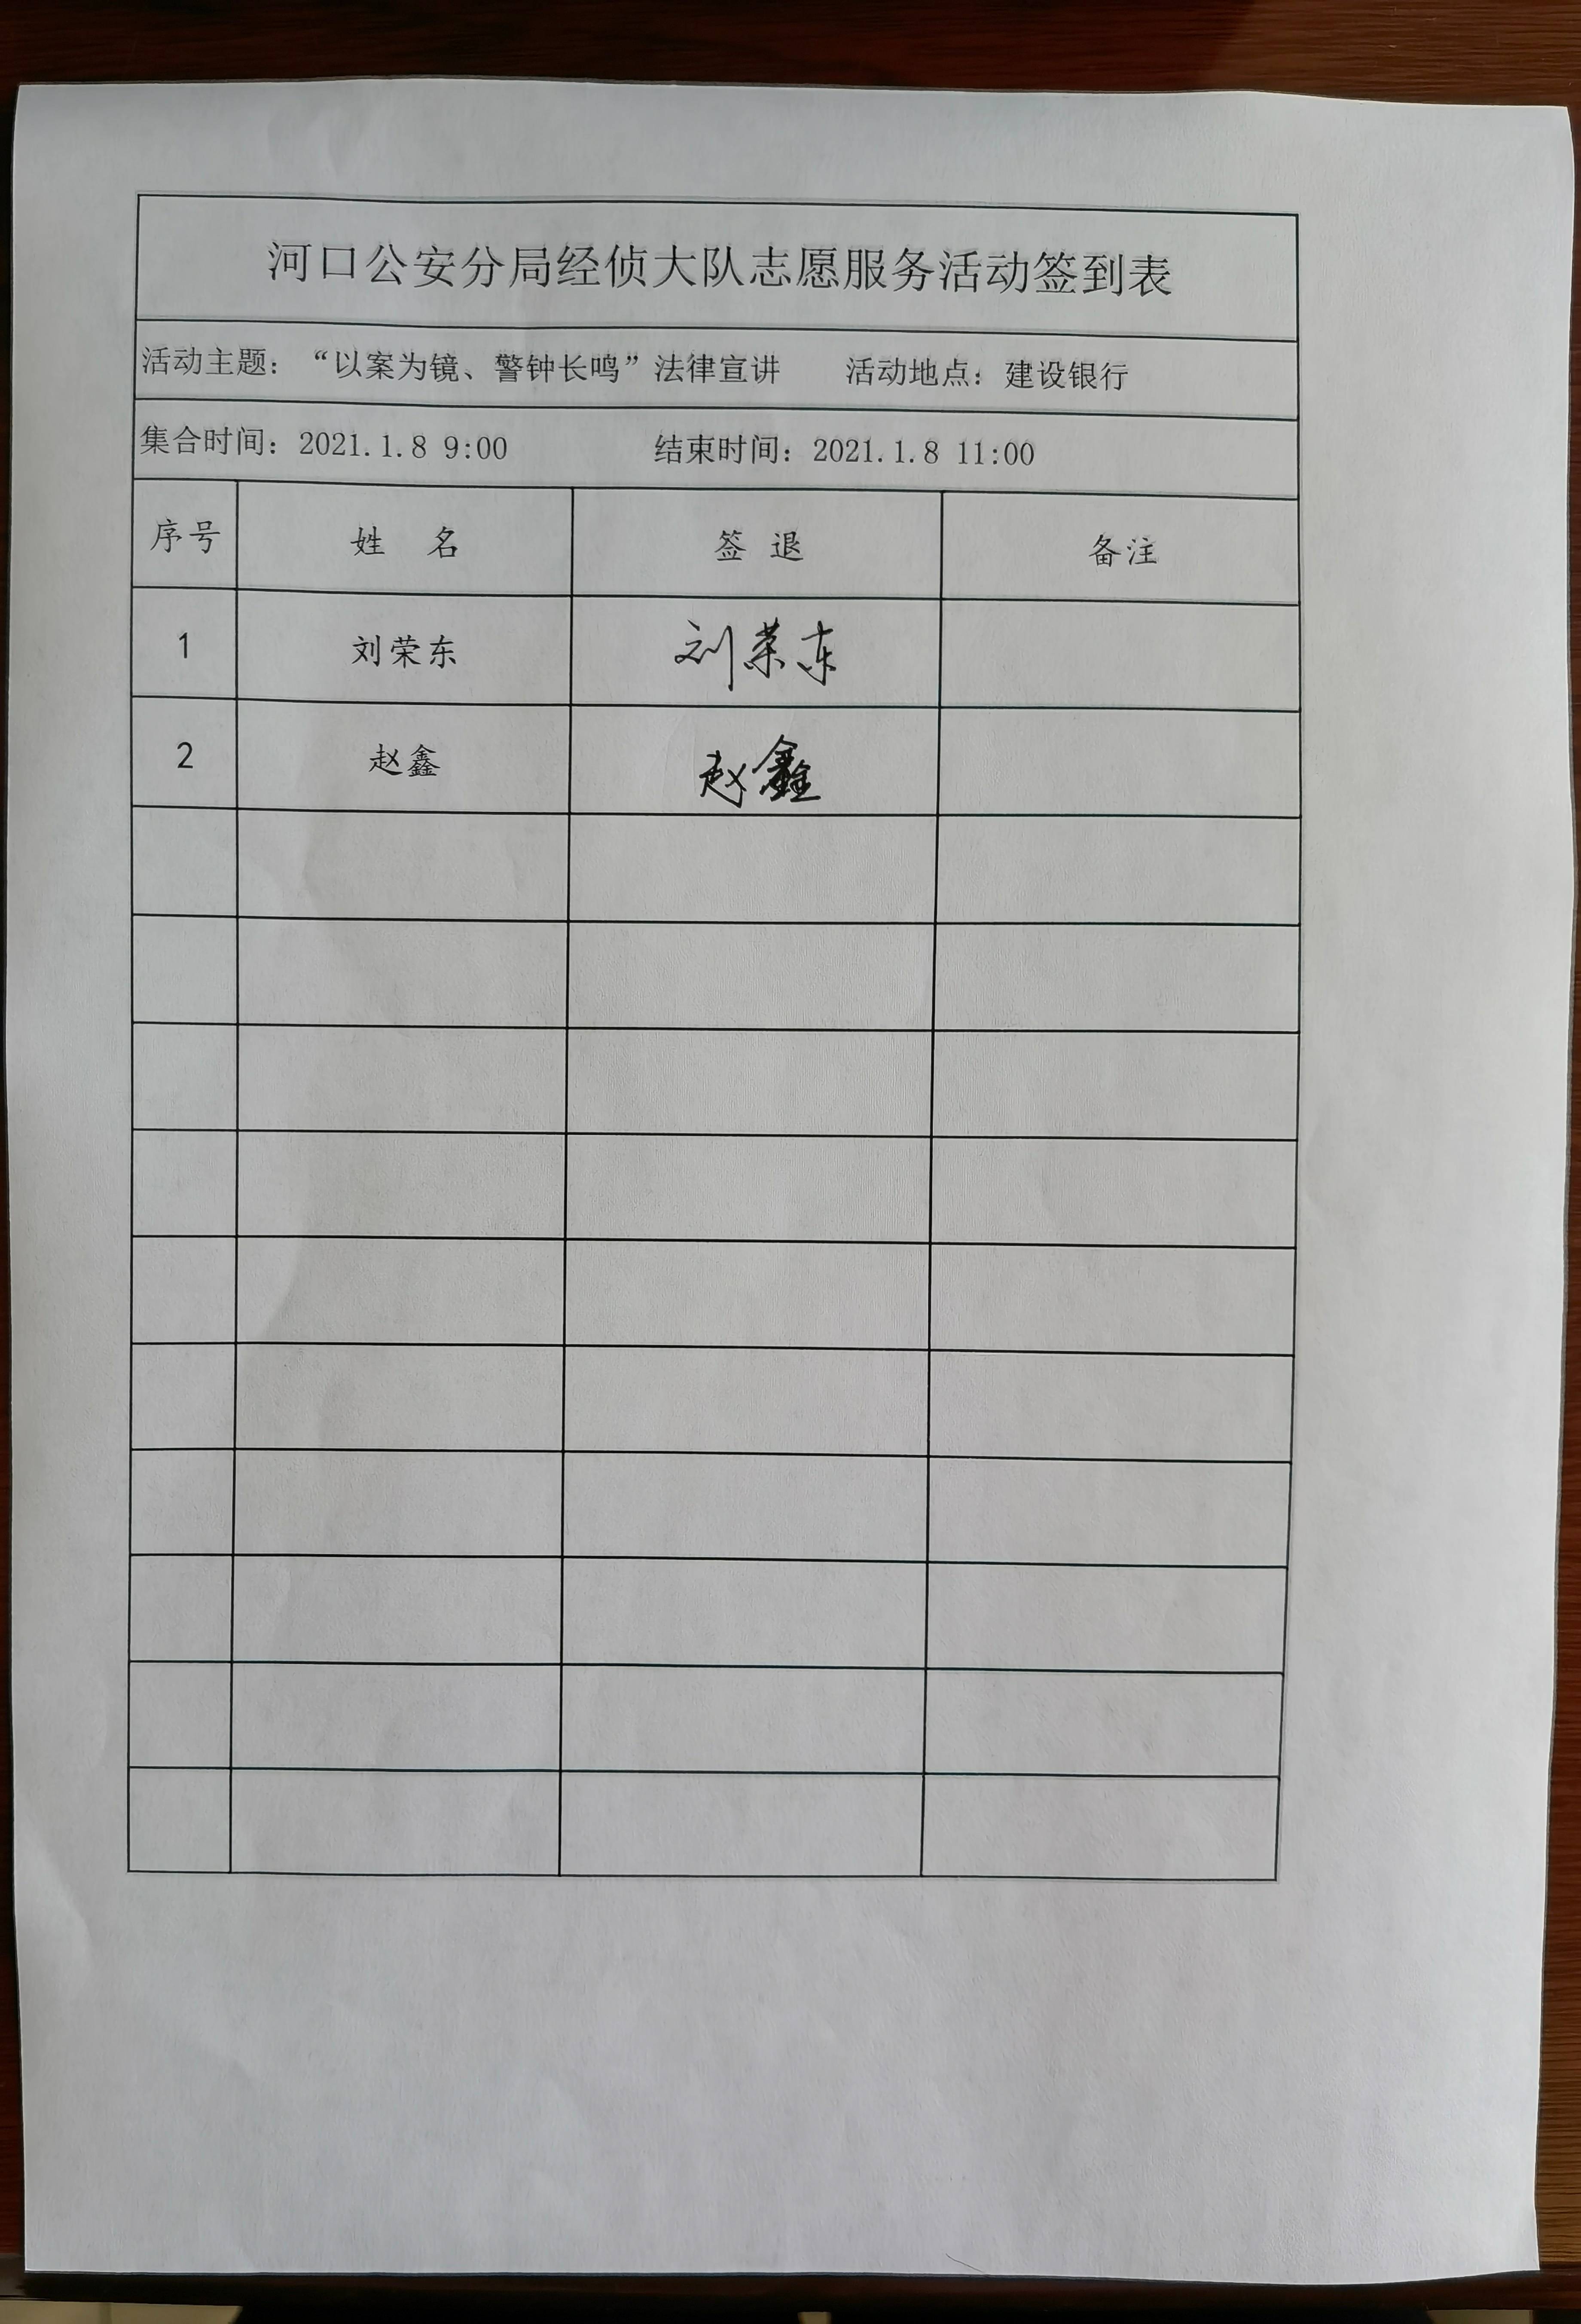 河口公安分局经侦大队志愿服务活动签到表
活动主题：“以案为镜、警钟长鸣”法律宣讲 活动地点：建设银行
集合时间：2021.1.8 9:00 结束时间：2021.1.8 11:00
序号 姓 名 签 退 备注
1 刘荣东 刘荣东
2 赵鑫 赵鑫